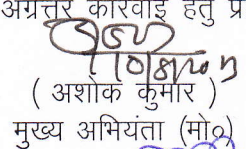 अग्रत्तर कारवाई हेतु प्र
( अशोक कुमार )
मुख्य अभियंता (मो०)